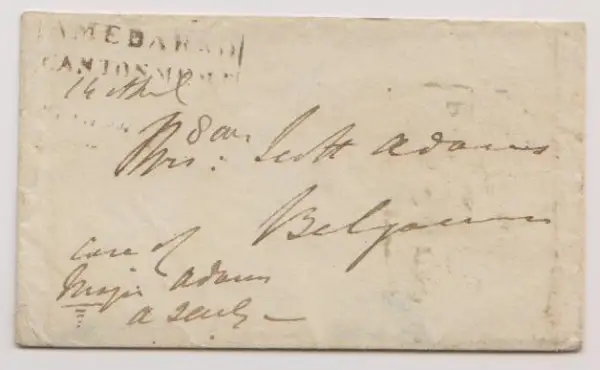 AMEDABAD
CANTONMENT
14 April
P 8 an
Mrs: Scott Adams
Belgaum
care of
Major Adams